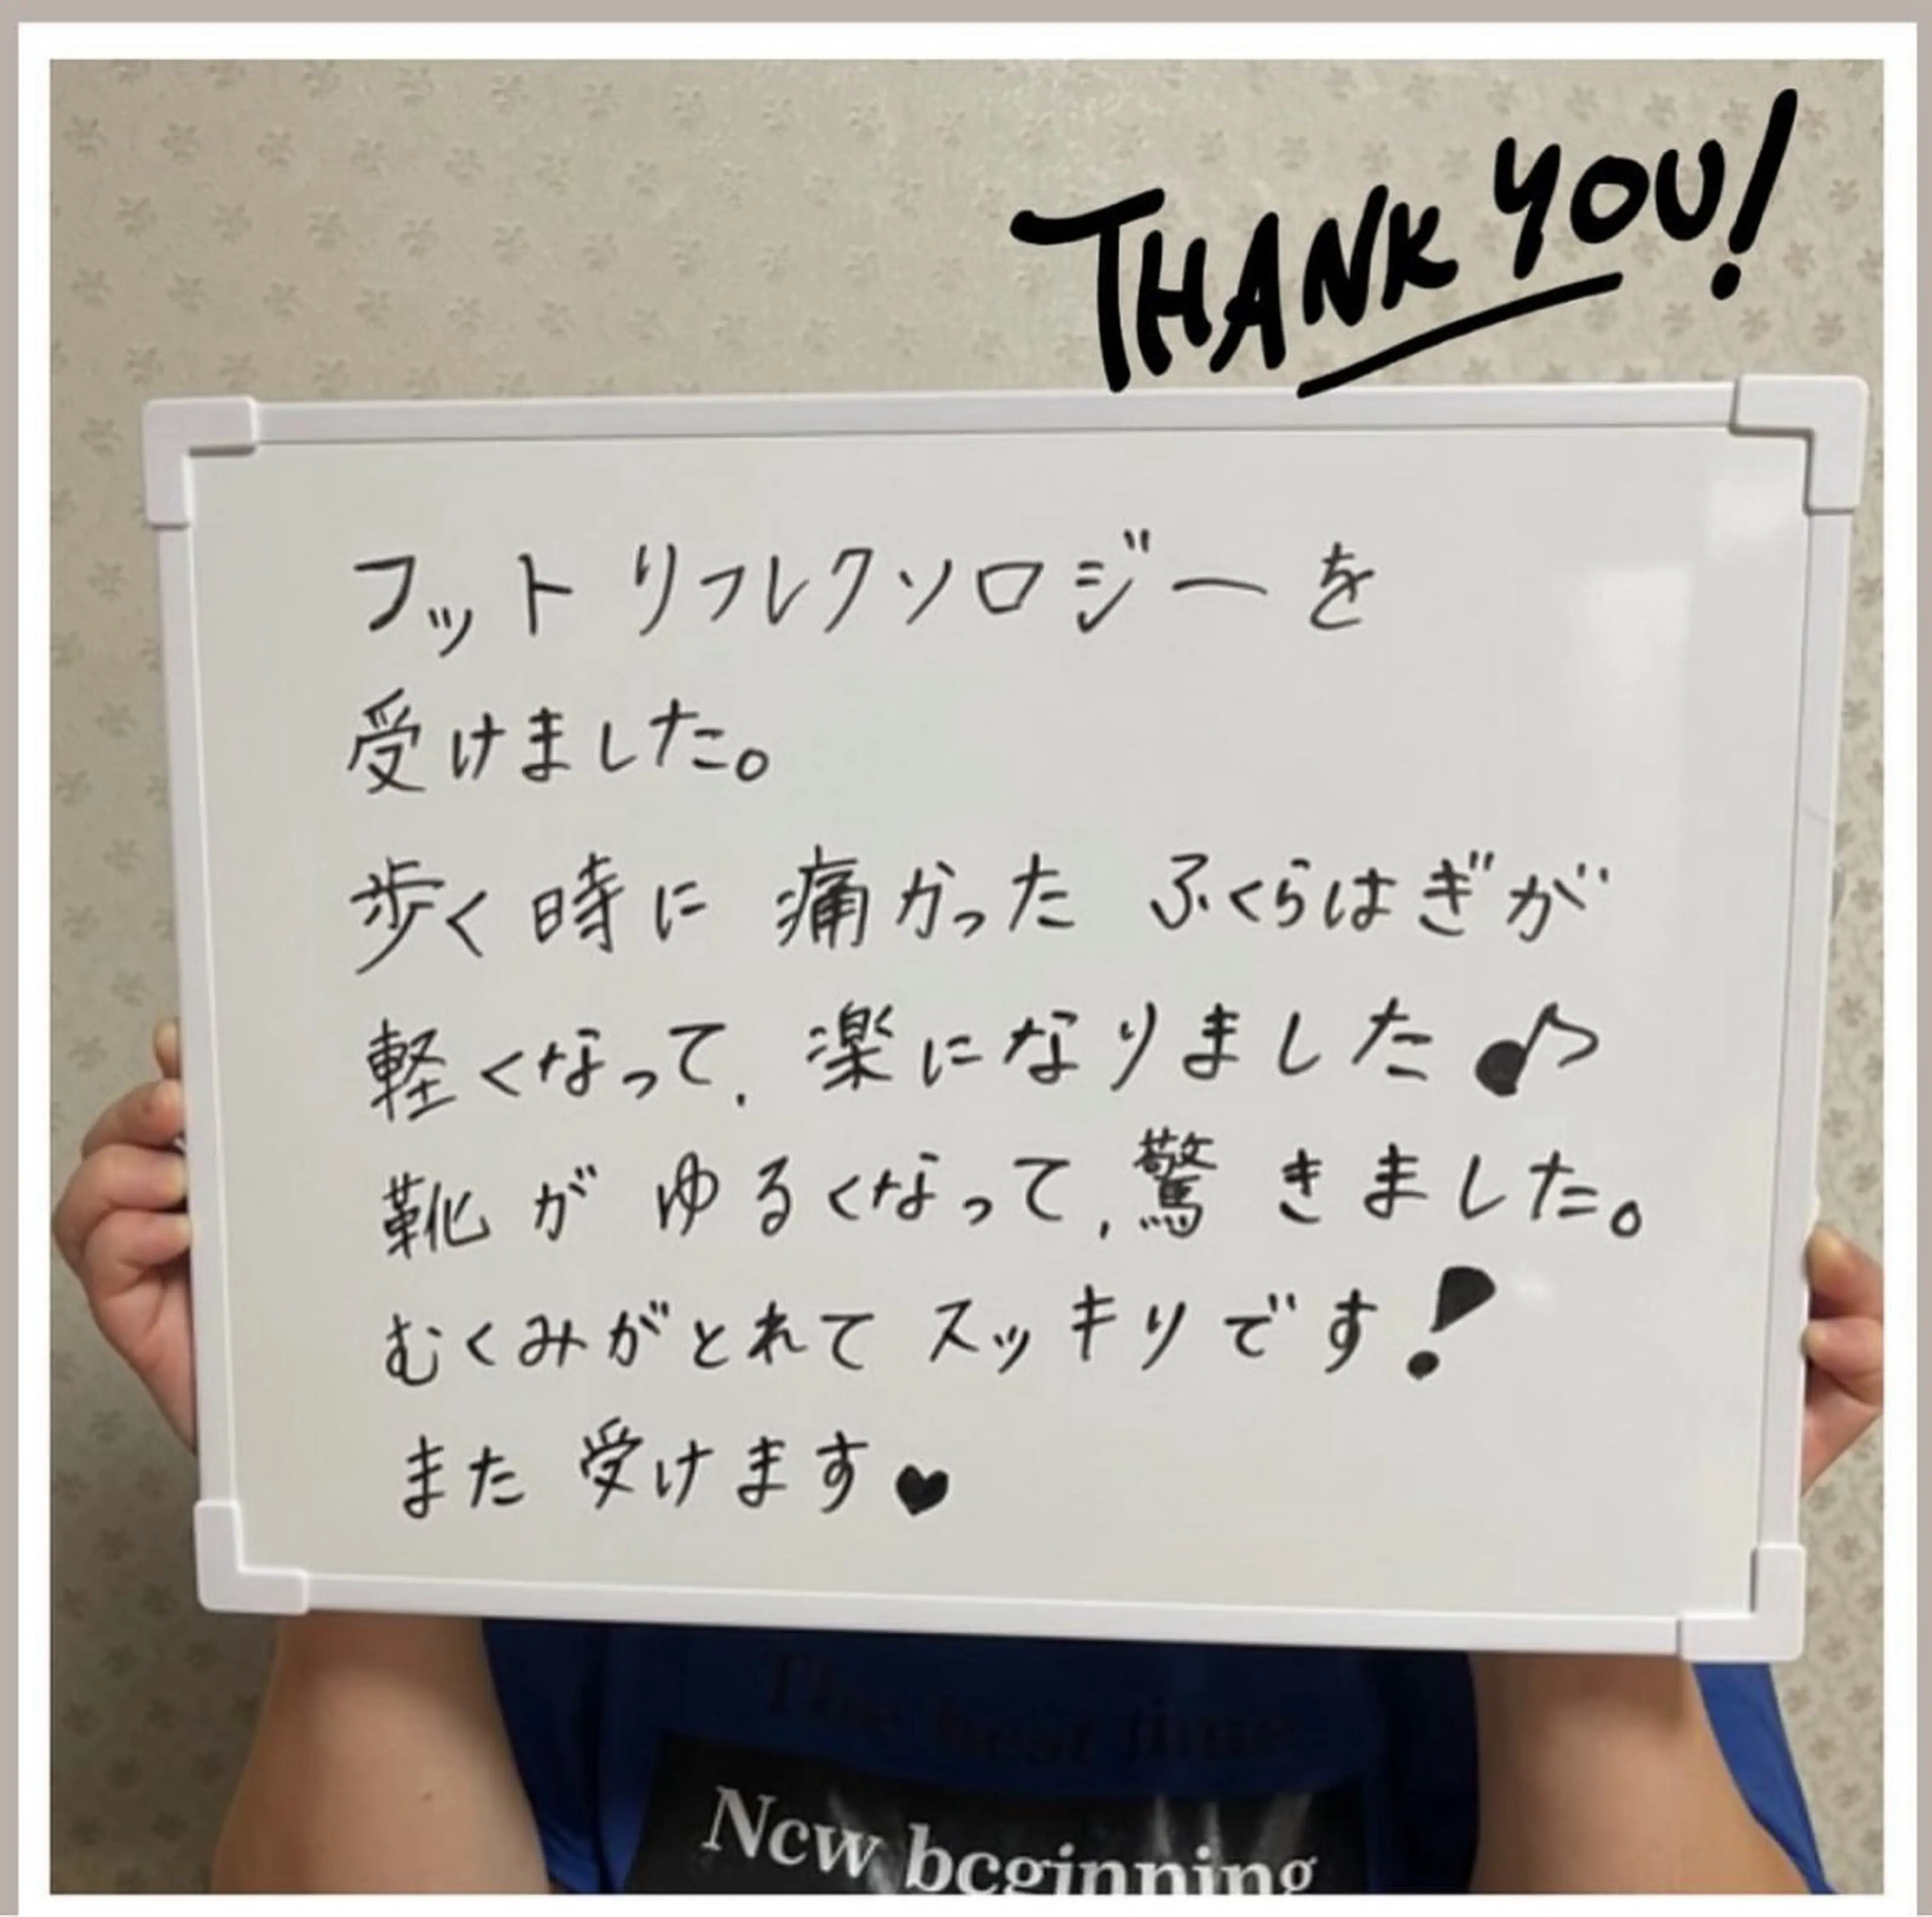 THANK YOU!
フットリフレクソロジーを
受けました。
歩く時に 痛かった ふくらはぎが
軽くなって、楽になりました♪
靴が ゆるくなって、驚きました。
むくみがとれて スッキリです!
また 受けます♥
The best time
New beginning